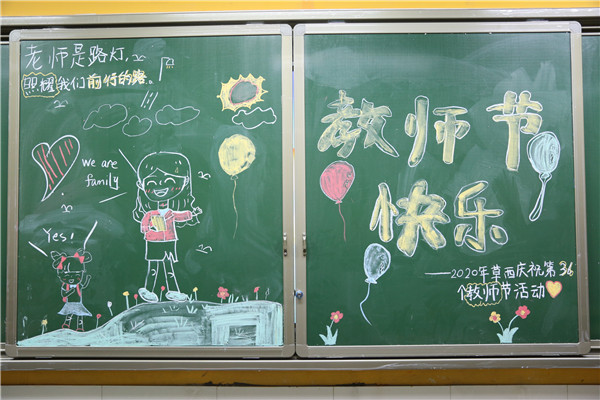 老师是路灯,
照耀我们前行的路。
we are
family
Yes!
教师节
快乐
——2020年草西庆祝第36
个教师节活动